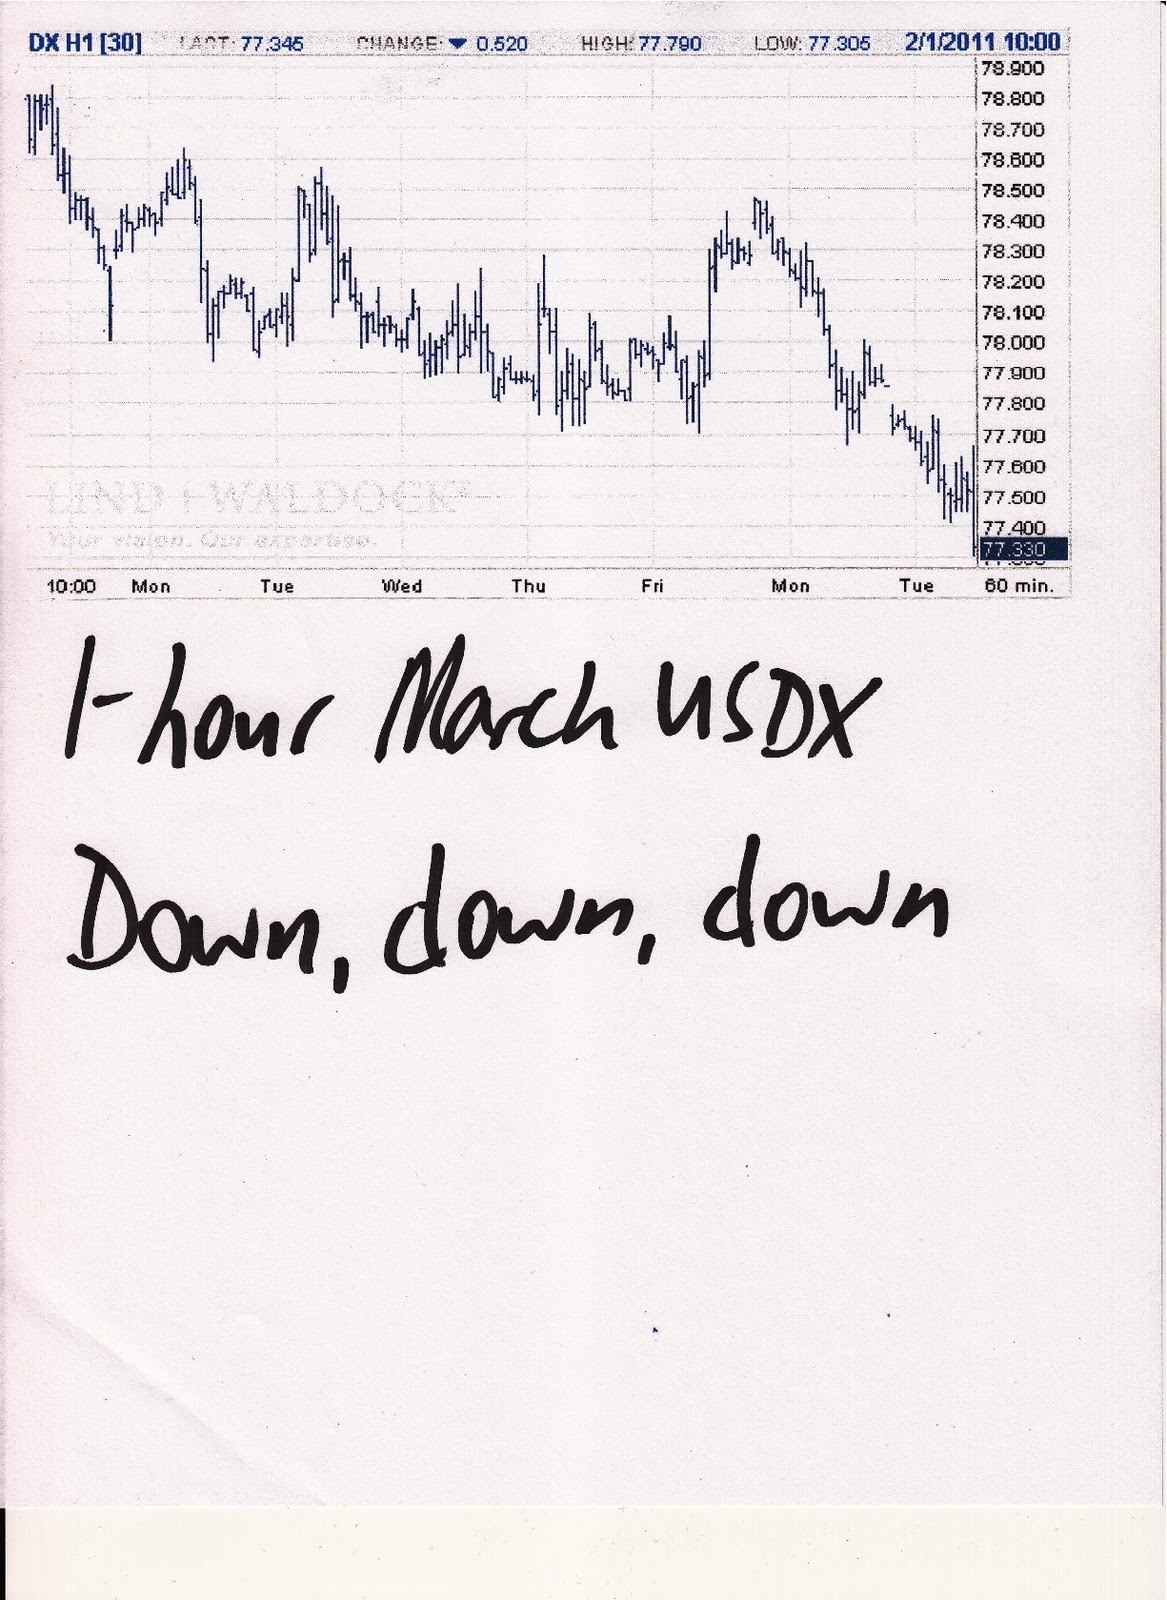 DX H1 [30] LAST: 77.345 CHANGE: ▼ 0.520 HIGH: 77.790 LOW: 77.305 2/1/2011 10:00
78.900
78.800
78.700
78.600
78.500
78.400
78.300
78.200
78.100
78.000
77.900
77.800
77.700
77.600
77.500
77.400
77.330
LIND WALDOCK
Your vision. Our expertise.
10:00 Mon Tue Wed Thu Fri Mon Tue 60 min.
1-hour March USDX
Down, down, down